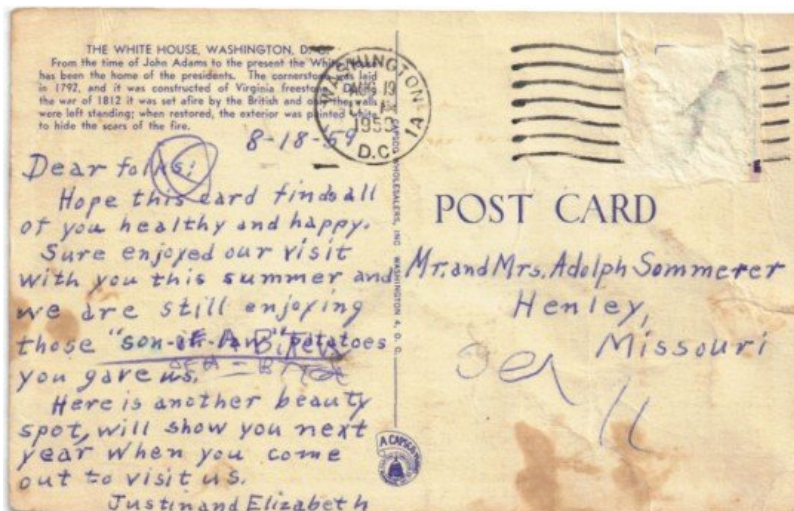 THE WHITE HOUSE, WASHINGTON, D. C.
From the time of John Adams to the present the White House
has been the home of the presidents. The cornerstone was laid
in 1792, and it was constructed of Virginia freestone. During
the war of 1812 it was set afire by the British and only the walls
were left standing; when restored, the exterior was painted white
to hide the scars of the fire.
8-18-59
Dear folks:
Hope this card finds all
of you healthy and happy.
Sure enjoyed our visit
with you this summer and
we are still enjoying
those "son-in-law" potatoes
you gave us.
Here is another beauty
spot, will show you next
year when you come
out to visit us.
Justin and Elizabeth
WASHINGTON
AUG 19
1959
D.C.
CAPSCO WHOLESALERS, INC. WASHINGTON 4, D. C.
A CAPSCO
POST CARD
Mr. and Mrs. Adolph Sommerer
Henley,
Missouri